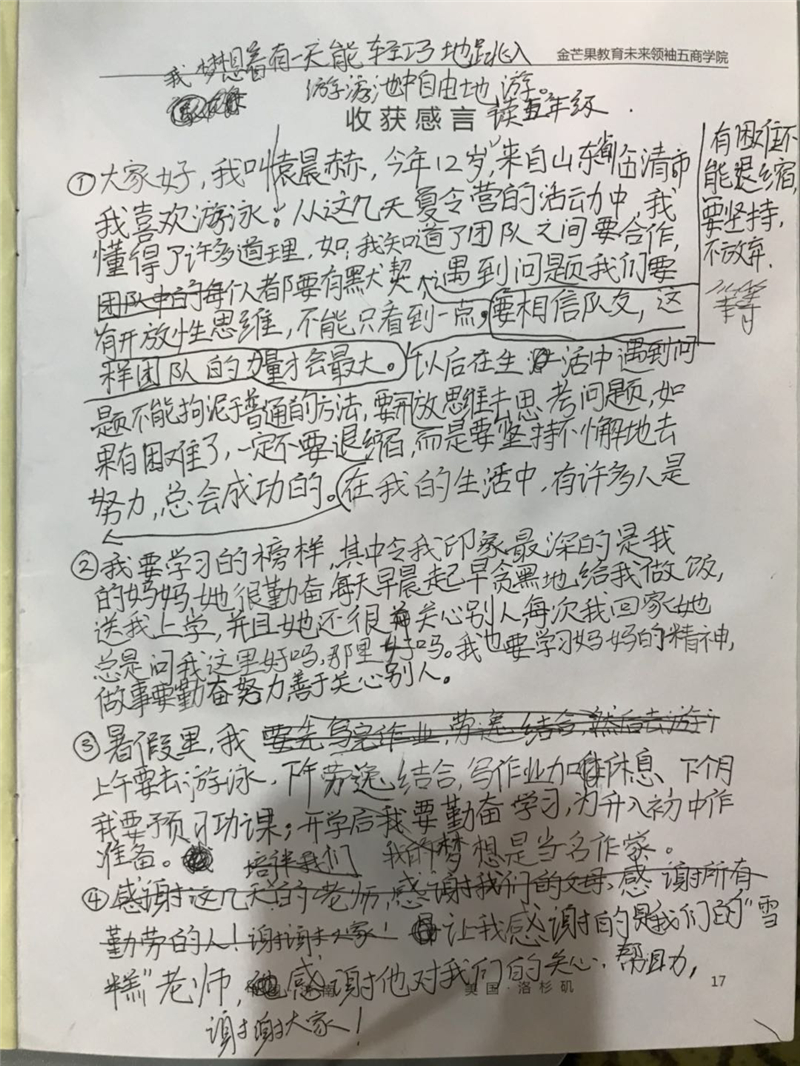 金芒果教育未来领袖五商学院
我梦想着有一天能轻巧地跳入
游泳池中自由地游。
收获感言
读五年级.
①大家好,我叫袁晨赫,今年12岁,来自山东省临清市
我喜欢游泳。从这几天夏令营的活动中,我
懂得了许多道理,如:我知道了团队之间要合作,
团队中的每个人者都要有默契,遇到问题我们要
有开放性思维,不能只看到一点,要相信队友,这
样团队的力量才会最大。以后在生活中遇到问
题不能拘泥于普通的方法,要开放思维去思考问题,如
果有困难了,一定不要退缩,而是要坚持不懈地去
努力,总会成功的。在我的生活中,有许多人是
有困难不
能退缩,
要坚持,
不放弃.
②我要学习的榜样,其中令我印象最深的是我
的妈妈,她很勤奋,每天早晨起早贪黑地给我做饭,
送我上学,并且她还很关心别人每次我回家她
总是问我这里好吗,那里好吗。我也要学习妈妈的精神,
做事要勤奋努力善于关心别人。
③暑假里,我要先写完作业,劳逸结合,然后去游
上午要去游泳、下午劳逸结合,写作业加休息、下个月
我要预习功课;开学后我要勤奋学习,为升入初中作
准备。培伴我们 我的梦想是当名作家。
④感谢这几天的老师,感谢我们的父母、感谢所有
勤劳的人!谢谢大家!让我感谢的是我们的"雪
糕"老师,感谢他对我们的关心、帮助,
美国·洛杉矶
17
谢谢大家!